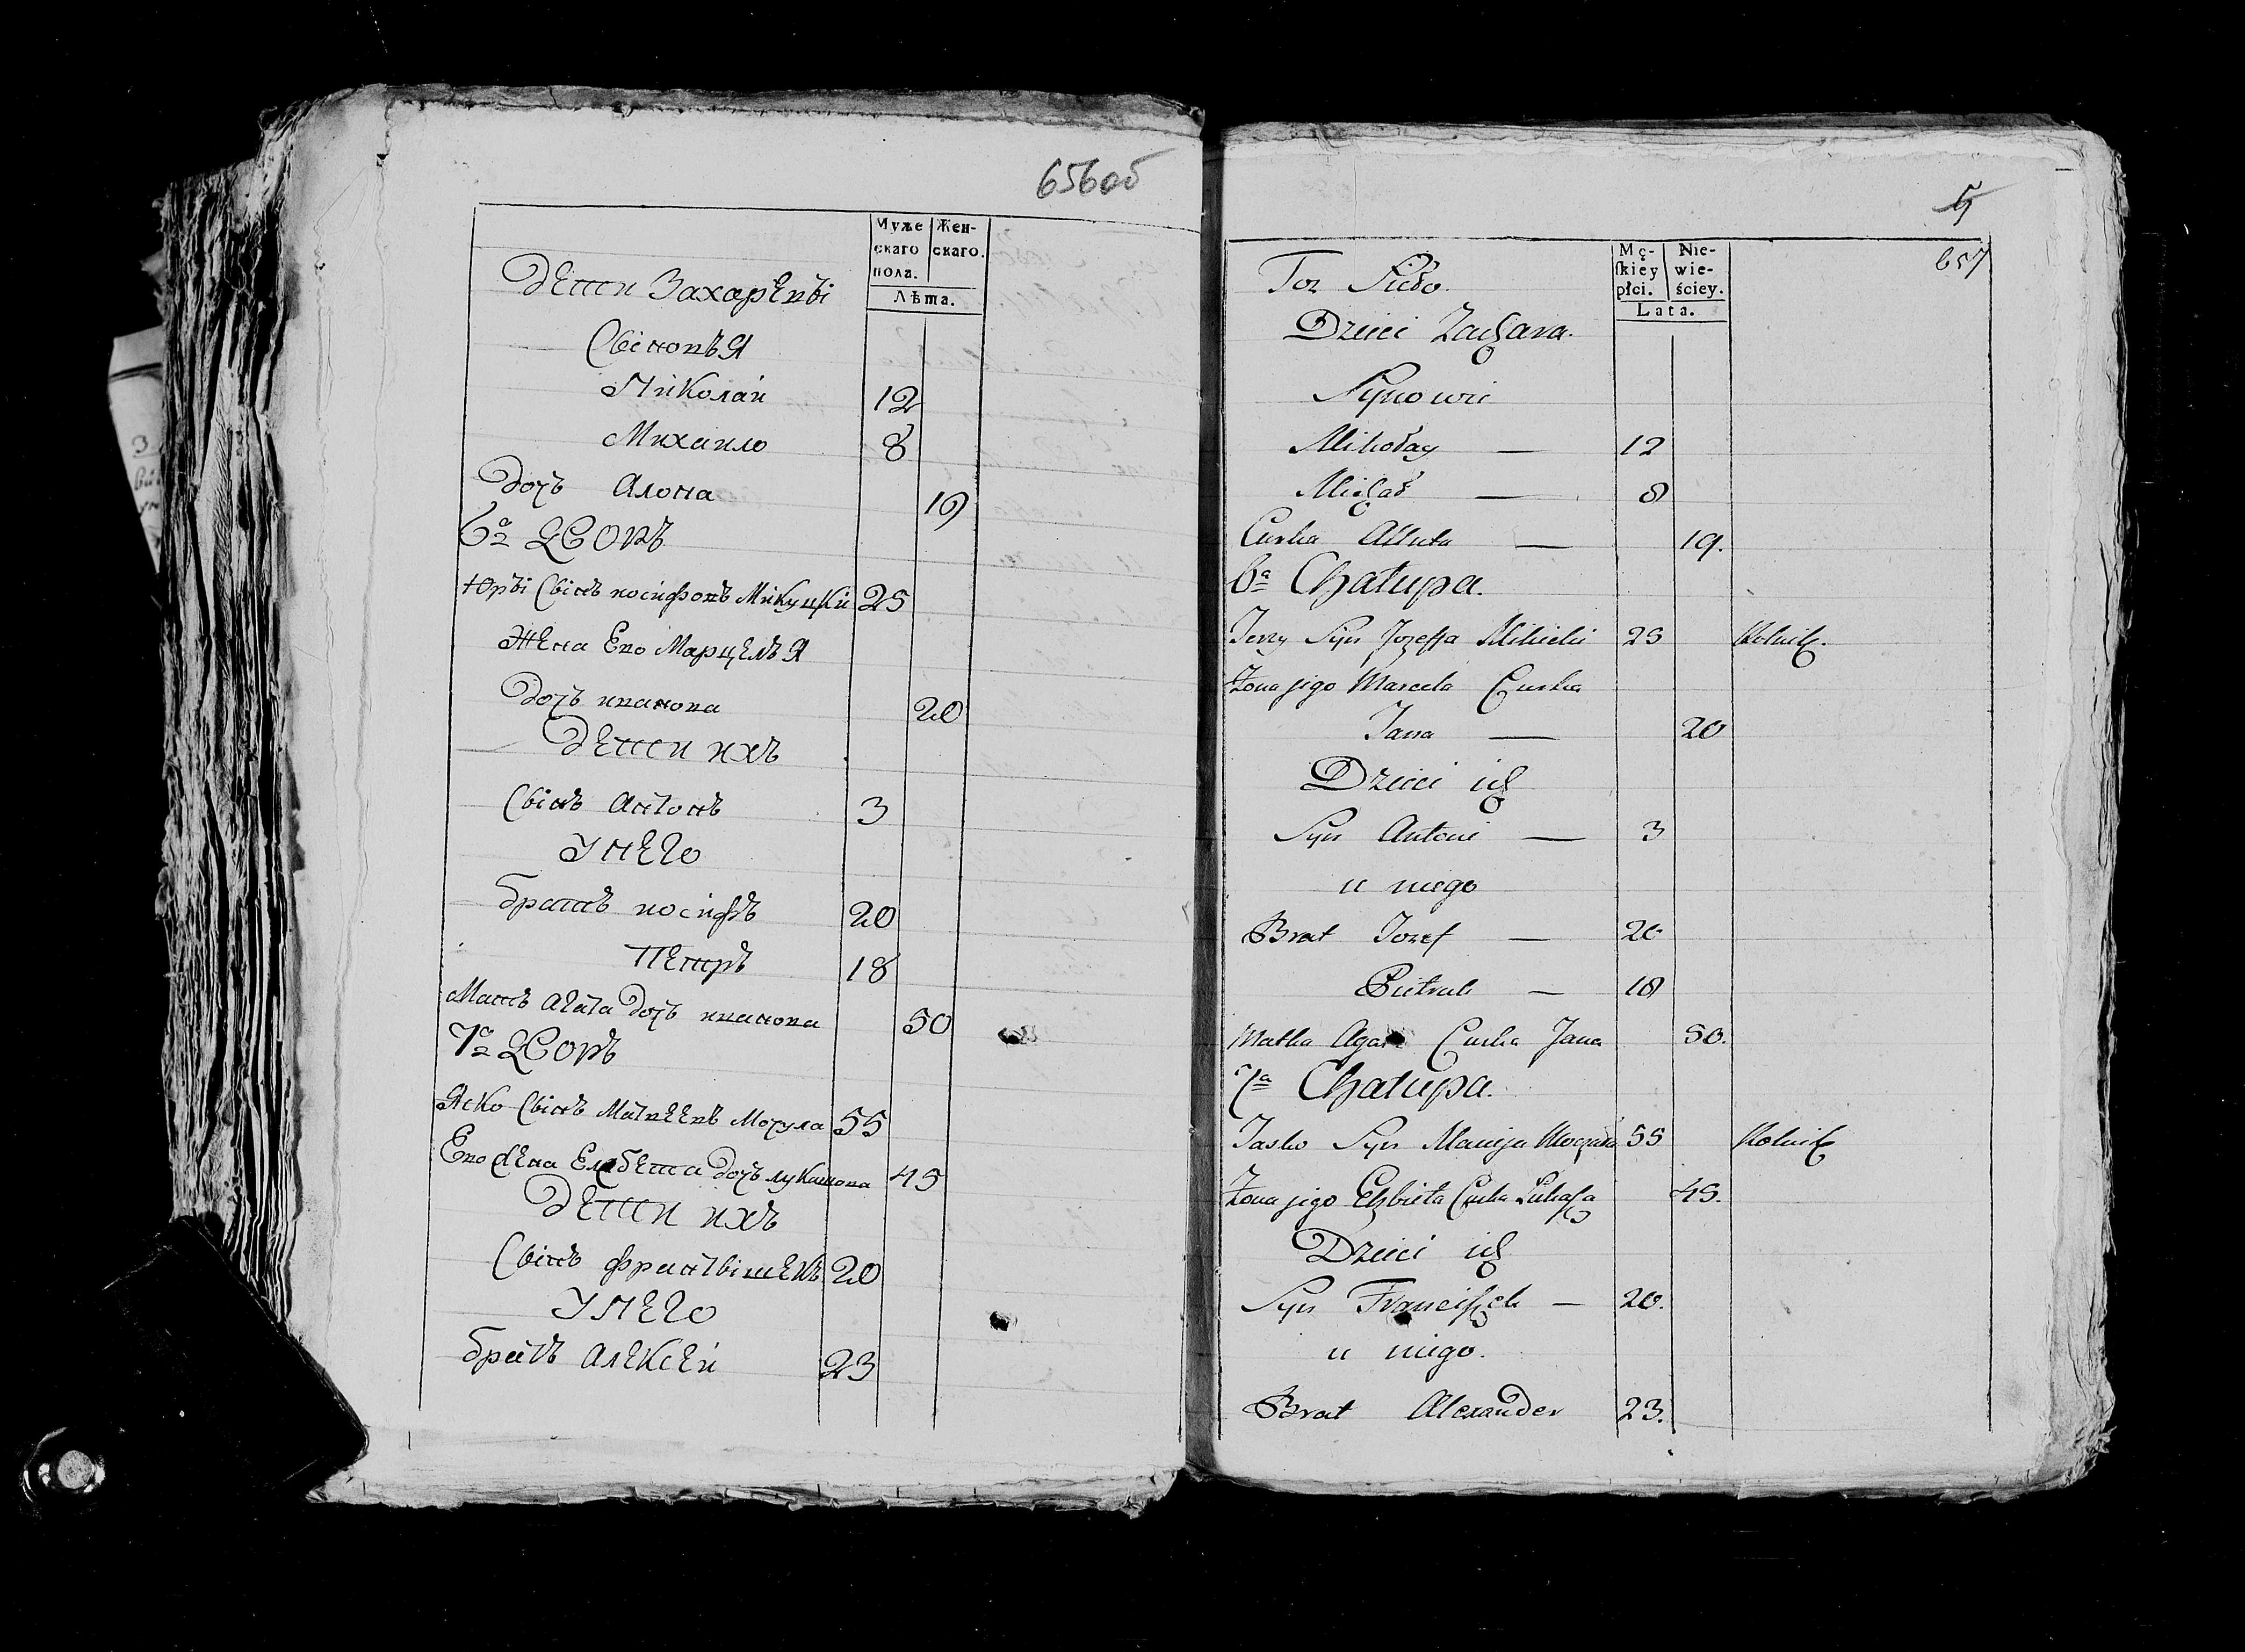 656об
Муже
скаго
пола.
Жен-
скаго.
Лѣта.
Дети Захаревы
Свіновья
Николаи 12
Михаило 8
дочь Алона 19
6а Дворъ
Юрьі Свінъ иосифовъ Микуцки 25
Жена Ево Марцеля
дочь иванова 20
Дети ихъ
Свінъ Антонъ 3
У него
братъ иосифъ 20
Петръ 18
Мать Агата дочь иванова 50
7а Дворъ
Яско Свінъ Матвеевъ Мочула 55
Ево жена Елзбета дочь лукашова 45
Дети ихъ
Свінъ францішекъ 20
У него
братъ Алексеи 23
5
657
Mę-
skiey
płci.
Nie-
wie-
ściey.
Lata.
Toż Sioło.
Dzieci Zachara.
Synowie
Mikołay — 12
Michał — 8
Curka — 19.
6a Chałupa.
Jerzy Syn Jozeffa Mikucki 25 Rolnik.
Zona jego Marcela Curka
Jana — 20
Dzieci ich
Syn Antoni — 3
u niego
Brat Jozef — 20
Pietruk — 18
Matka Agata Curka Jana 50.
7a Chałupa.
Jasko Syn Macieja Moczuła 55 Rolnik
Zona jego Elzbieta Curka Łukasza 45.
Dzieci ich
Syn Franciszek — 20.
u niego.
Brat Alexander 23.